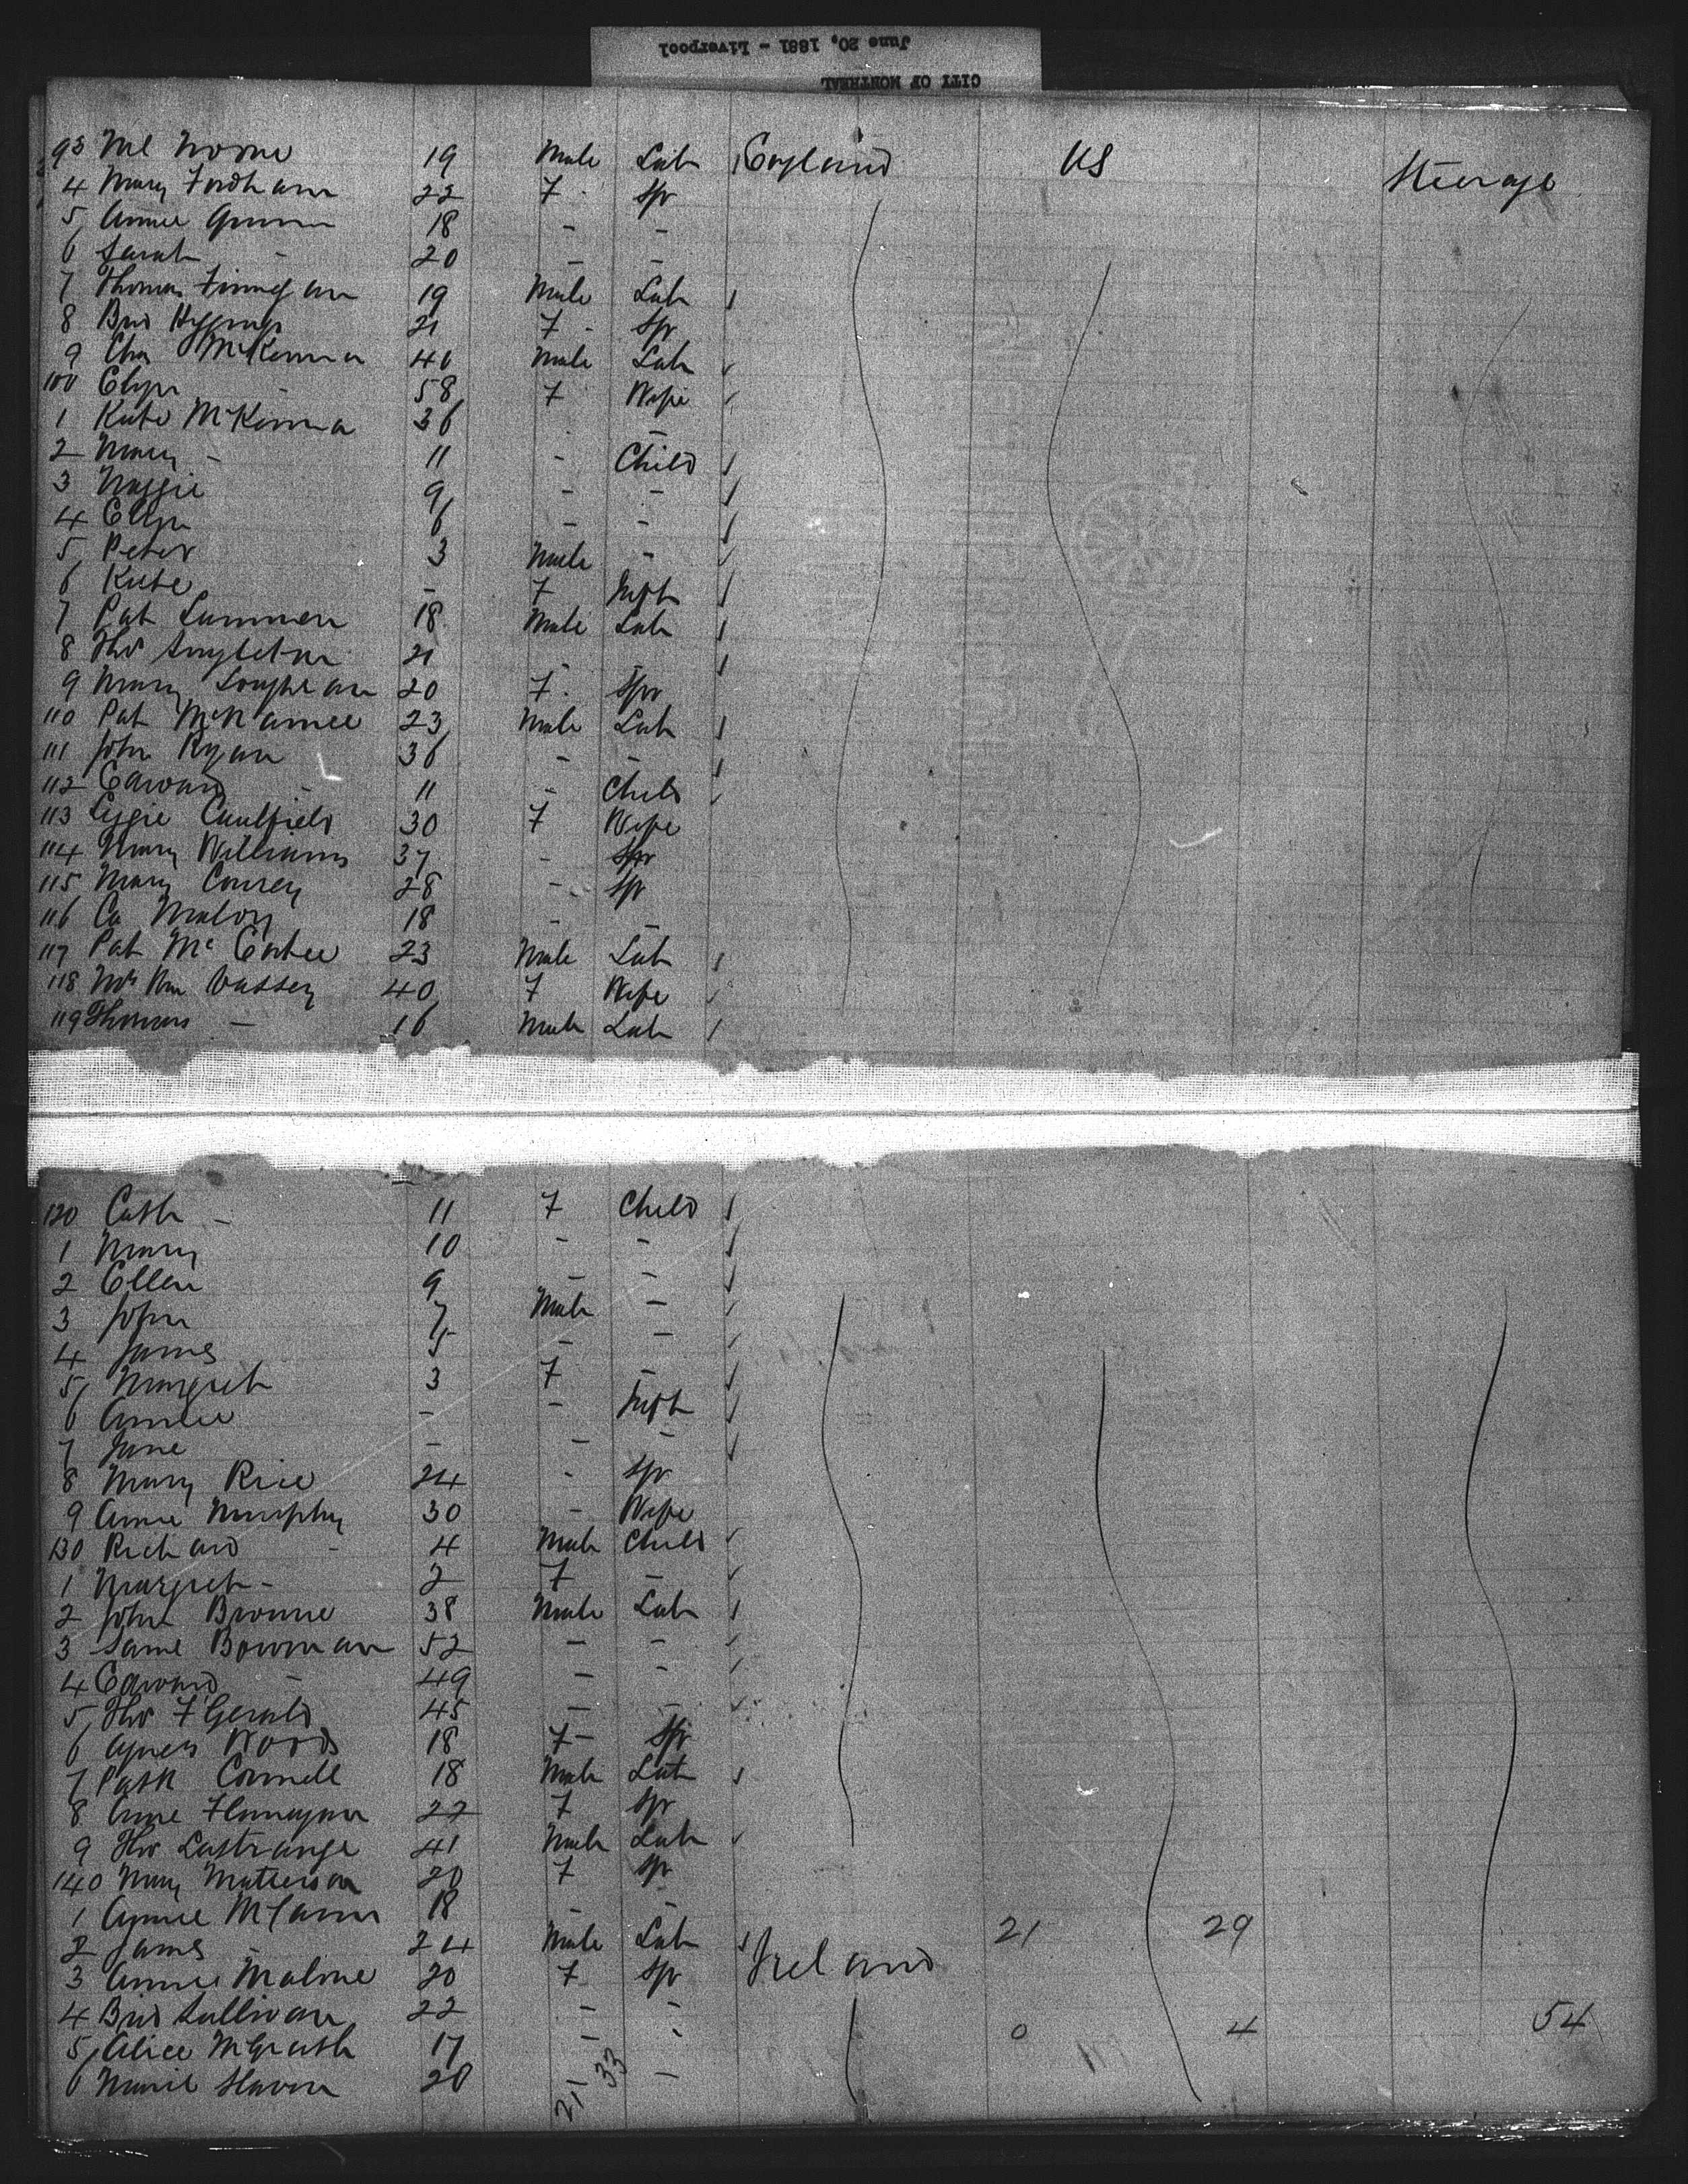 CITY OF MONTREAL
June 20, 1881 - Liverpool
93 19 Male Lab England US Steerage
4 Mary Fordham 22 F Sp
5 Annie 18 - -
6 Sarah - 20 - -
7 Thomas Finnegan 19 Male Lab
8 Brid 21 F - Sp
9 Chas McKenna 40 Male Lab
100 58 F Wife
1 Kate McKenna 36 - -
2 Mary - 11 - Child
3 Maggie 9 - -
4 6 - -
5 Peter 3 Male -
6 Kate - F Inft
7 Pat 18 Male Lab
8 Tho Singleton 21 - -
9 Mary Loughran 20 F Spr
110 Pat McNamee 23 Male Lab
111 John Ryan 36 - -
112 Edward - 11 - Child
113 Lizzie Caulfield 30 F Wife
114 Mary Williams 37 - Spr
115 Mary Conrey 28 - Sp
116 Ca Maloy 18 - -
117 Pat McEntee 23 Male Lab
118 Mrs Wm Vassey 40 F Wife
119 Thomas - 16 Male Lab
120 Cath - 11 F Child
1 Mary 10 - -
2 Ellen 9 - -
3 John 7 Male -
4 James 5 - -
5 Margret 3 F -
6 - - Inft
7 Jane - - -
8 Mary Rice 24 - Spr
9 Annie Murphy 30 - Wife
130 Richard - 4 Male Child
1 Margret - 2 F -
2 John Browne 38 Male Lab
3 Bowman 52 - -
4 Edward - 49 - -
5 Tho FGerald 45 - -
6 Agnes Woods 18 F - Sp
7 Patk Connell 18 Male Lab
8 Anne Flannagan 22 F Sp
9 Tho Lastrange 41 Male Lab
140 Mary Matterson 20 F Sp
1 Annie McCann 18 - -
2 James - 24 Male Lab 21 29
3 Annie Malone 20 F Sp Ireland
4 Brid Sullivan 22 - -
5 Alice McGrath 17 - - 0 4 54
6 20 - -
21 33